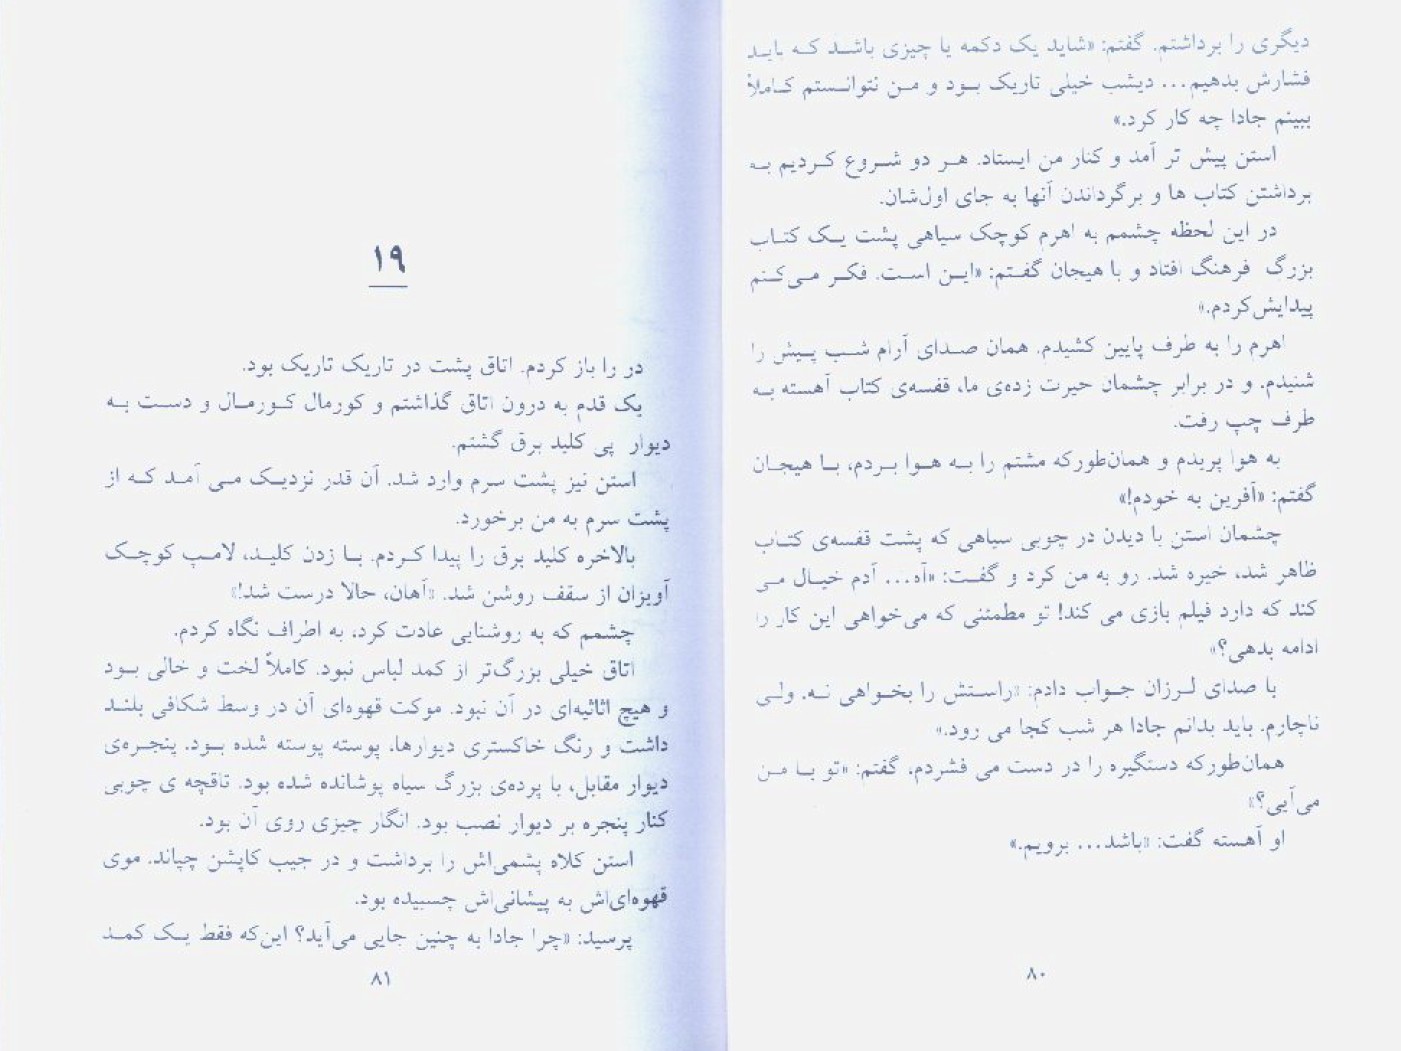 دیگری را برداشتم. گفتم: «شاید یک دکمه یا چیزی باشد که باید
فشارش بدهیم... دیشب خیلی تاریک بود و من نتوانستم کاملاً
ببینم جادا چه کار کرد.»
استن پیش تر آمد و کنار من ایستاد. هر دو شروع کردیم به
برداشتن کتاب ها و برگرداندن آنها به جای اول‌شان.
در این لحظه چشمم به اهرم کوچک سیاهی پشت یک کتاب
بزرگ فرهنگ افتاد و با هیجان گفتم: «این است. فکر می‌کنم
پیدایش‌کردم.»
اهرم را به طرف پایین کشیدم. همان صدای آرام شب پیش را
شنیدم. و در برابر چشمان حیرت زده‌ی ما، قفسه‌ی کتاب آهسته به
طرف چپ رفت.
به هوا پریدم و همان‌طورکه مشتم را به هوا بردم، با هیجان
گفتم: «آفرین به خودم!»
چشمان استن با دیدن در چوبی سیاهی که پشت قفسه‌ی کتاب
ظاهر شد، خیره شد. رو به من کرد و گفت: «آه... آدم خیال می
کند که دارد فیلم بازی می کند! تو مطمئنی که می‌خواهی این کار را
ادامه بدهی؟»
با صدای لرزان جواب دادم: «راستش را بخواهی نه. ولی
ناچارم. باید بدانم جادا هر شب کجا می رود.»
همان‌طورکه دستگیره را در دست می فشردم، گفتم: «تو با من
می‌آیی؟»
او آهسته گفت: «باشد... برویم.»
۸۰
۱۹
در را باز کردم. اتاق پشت در تاریک تاریک بود.
یک قدم به درون اتاق گذاشتم و کورمال کورمال و دست به
دیوار پی کلید برق گشتم.
استن نیز پشت سرم وارد شد. آن قدر نزدیک می آمد که از
پشت سرم به من برخورد.
بالاخره کلید برق را پیدا کردم. با زدن کلید، لامپ کوچک
آویزان از سقف روشن شد. «آهان، حالا درست شد!»
چشمم که به روشنایی عادت کرد، به اطراف نگاه کردم.
اتاق خیلی بزرگ‌تر از کمد لباس نبود. کاملاً لخت و خالی بود
و هیچ اثاثیه‌ای در آن نبود. موکت قهوه‌ای آن در وسط شکافی بلند
داشت و رنگ خاکستری دیوارها، پوسته پوسته شده بود. پنجره‌ی
دیوار مقابل، با پرده‌ی بزرگ سیاه پوشانده شده بود. تاقچه ی چوبی
کنار پنجره بر دیوار نصب بود. انگار چیزی روی آن بود.
استن کلاه پشمی‌اش را برداشت و در جیب کاپشن چپاند. موی
قهوه‌ای‌اش به پیشانی‌اش چسبیده بود.
پرسید: «چرا جادا به چنین جایی می‌آید؟ این‌که فقط یک کمد
۸۱